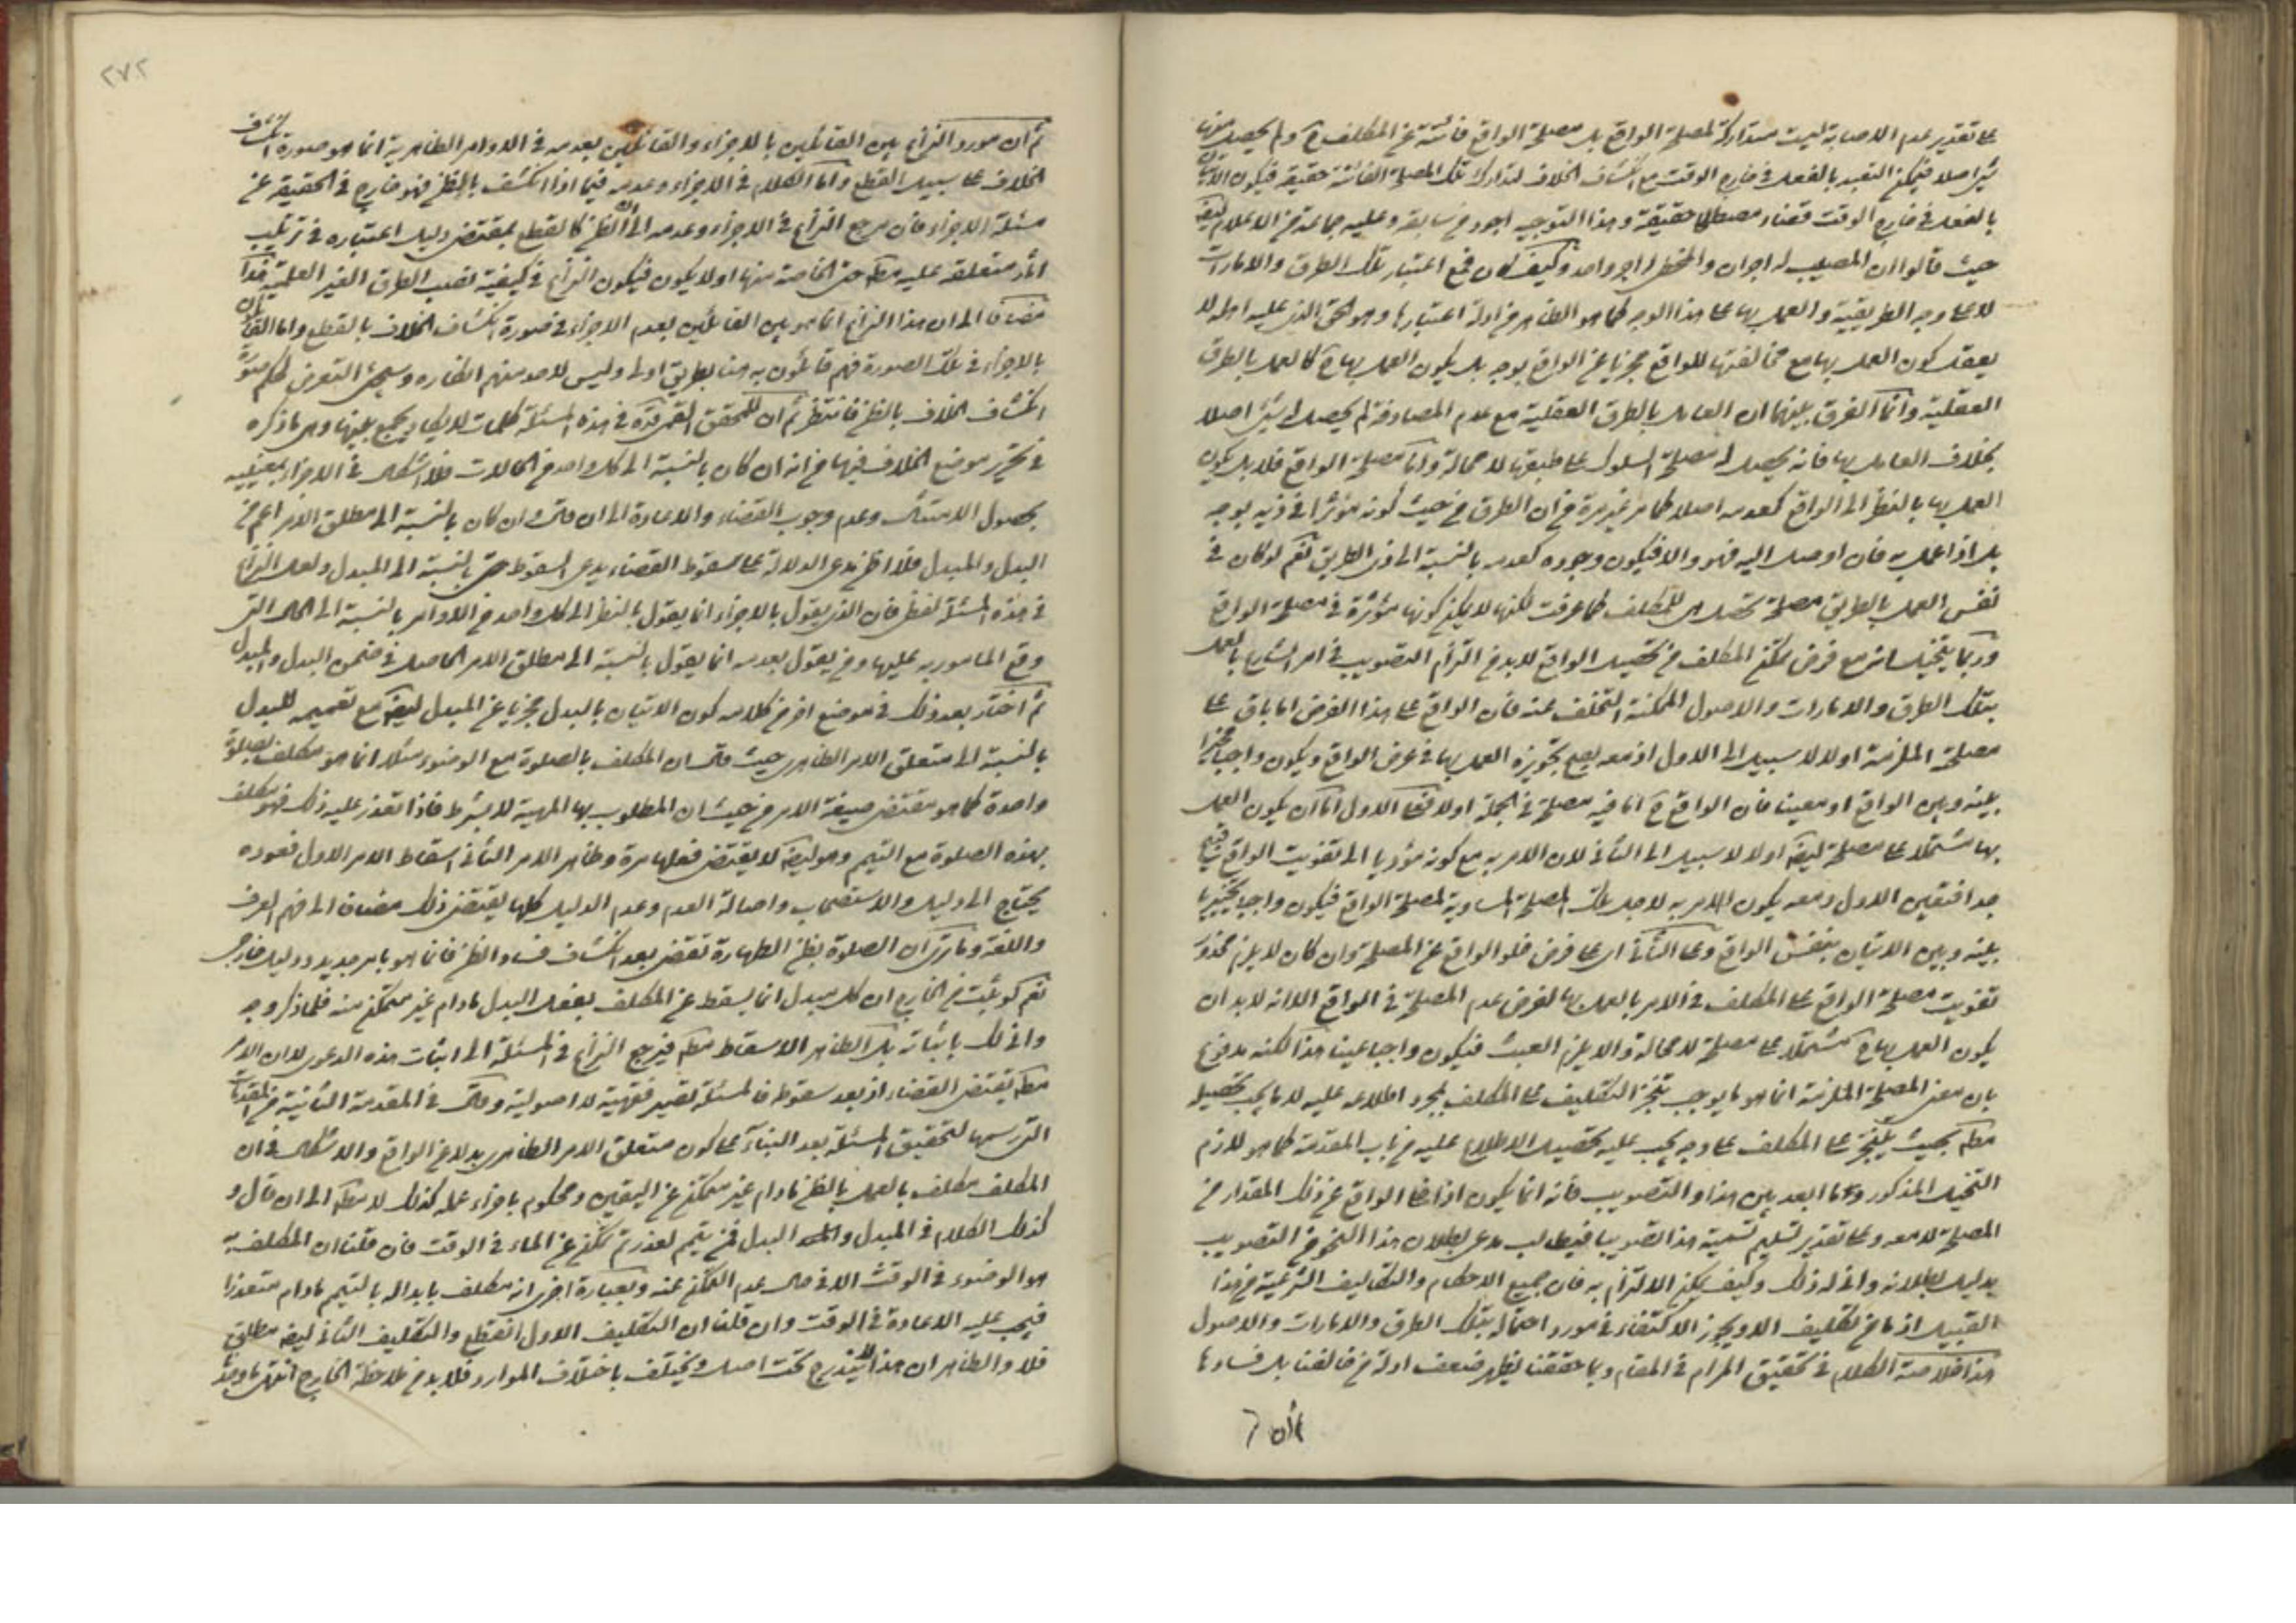 على تقدير عدم الاصابة ليست متداركة لمصلحة الواقع بل مصلحة الواقع فائتة عن المكلف ح ولم يحصل منها
شئ اصلا فيمكن التعبد بالفعل في خارج الوقت مع انكشاف الخلاف لتدارك تلك المصلحة الفائتة حقيقة فيكون الاتيان
بالفعل في خارج الوقت قضاء مصطلحا حقيقة وهذا التوجيه اجود من سابقه وعليه جماعة من الاعلام ايضا
حيث قالوا ان للمصيب له اجران والمخطئ له اجر واحد وكيف كان فمع اعتبار تلك الطرق والامارات
لا على وجه الطريقية والعمل بها على هذا الوجه كما هو الظاهر من ادلة اعتبارها وهو الحق الذي عليه اهله لا
يعقل كون العمل بها مع مخالفتها للواقع مجزيا عن الواقع بوجه بل يكون العمل بها ح كالعمل بالطرق
العقلية وانما الفرق بينهما ان العامل بالطرق العقلية مع عدم المصادفة لم يحصل له شئ اصلا
بخلاف العامل بها فانه يحصل له مصلحة السلوك على طبقها لا محالة واما مصلحة الواقع فلا بل يكون
العمل بها بالنظر الى الواقع كعدمه اصلا كما مر غير مرة من ان الطرق من حيث كونه مؤثرا في ذيه بوجه
بل اذا عمل به فان اوصل اليه فهو والا فيكون وجوده كعدمه بالنسبة الى ذي الطريق نعم لو كان في
نفس العمل بالطريق مصلحة تحصل للمكلف كما عرفت لكنها لا يمكن كونها مؤثرة في مصلحة الواقع
وربما يتخيل انه مع فرض تمكن المكلف من تحصيل الواقع لا بد من التزام التصويب في امر الشارع بالعمل
بتلك الطرق والامارات والاصول الممكنة التخلف عنه فان الواقع على هذا الفرض اما باق على
مصلحة الملزمة اولا لا سبيل الى الاول اذ معه يقبح تجويزه العمل بها في عرض الواقع ويكون واجبا مخيرا
بينه وبين الواقع او معينا فان الواقع ح اما فيه مصلحة في الجملة اولا فعلى الاول اما ان يكون العمل
بها مشتملا على مصلحة ايضا اولا لا سبيل الى الثاني لان الامر به مع كونه مؤديا الى تفويت الواقع قبيح
جدا فتعين الاول ومعه يكون الامر به لاجل تلك المصلحة المساوية لمصلحة الواقع فيكون واجبا تخييريا
بينه وبين الاتيان بنفس الواقع وعلى الثاني اي على فرض خلو الواقع عن المصلحة وان كان لا يلزم محذور
تفويت مصلحة الواقع على المكلف في الامر بالعمل بها لفرض عدم المصلحة في الواقع الا انه لا بد ان
يكون العمل بها ح مشتملا على مصلحة لا محالة والا يلزم العبث فيكون واجبا عينا هذا لكنه مدفوع
بان معنى المصلحة الملزمة انما هو ما يوجب تنجز التكليف على المكلف بمجرد اطلاعه عليه لا ما يجب تحصيله
مطلقا بحيث يتنجز على المكلف على وجه يجب عليه تحصيل الاطلاع عليه من باب المقدمة كما هو لازم
التخيل المذكور وما ابعد بين هذا والتصويب فانه انما يكون اذا خلا الواقع عن ذلك المقدار من
المصلحة لا معه وعلى تقدير تسليم تسمية هذا تصويبا فيطالب مدعي بطلان هذا النحو من التصويب
بدليل بطلانه وانى له ذلك وكيف يمكن الالتزام به فان جميع الاحكام والتكاليف الشرعية من هذا
القبيل اذ ما من تكليف الا ويجوز الاكتفاء في مورد احتماله بتلك الطرق والامارات والاصول
هذا خلاصة الكلام في تحقيق المرام في المقام وبما حققنا يظهر ضعف ادلة من خالفنا بل فسادها
ثم ان
٢٧٢
ثم ان مورد النزاع بين القائلين بالاجزاء والقائلين بعدمه في الاوامر الظاهرية انما هو صورة انكشاف
الخلاف على سبيل القطع واما الكلام في الاجزاء وعدمه فيما اذا انكشف بالظن فهو خارج في الحقيقة عن
مسئلة الاجزاء فان مرجع النزاع في الاجزاء وعدمه الى ان الظن كالقطع بمقتضى دليل اعتباره في ترتيب
آثار متعلقه عليه مطلقا حتى الخاصة منها اولا يكون فيكون النزاع في كيفية نصب الطرق الغير العلمية هذا
مضافا الى ان هذا النزاع انما هو بين القائلين بعدم الاجزاء في صورة انكشاف الخلاف بالقطع واما القائلون
بالاجزاء في تلك الصورة فهم قائلون به هنا بطريق اولى وليس لاحد منهم انكاره وسيجئ التعرض لحكم صورة
انكشاف الخلاف بالظن فانتظر ثم ان للمحقق القمي قده في هذه المسئلة كلمات لا يكاد يجمع بينها وهي ما ذكره
في تحرير موضع الخلاف فيها من انه ان كان بالنسبة الى كل واحد من الحالات فلا اشكال في الاجزاء بمعنييه
بحصول الامتثال وعدم وجوب القضاء والاعادة الى ان قال وان كان بالنسبة الى مطلق الامر اعم من
البدل والمبدل فلا اظن مدعي الدلالة على سقوط القضاء يدعي السقوط حتى بالنسبة الى المبدل ولعل النزاع
في هذه المسئلة لفظي فان الذي يقول بالاجزاء انما يقول بالنظر الى كل واحد من الاوامر بالنسبة الى الحال التي
وقع المأمور به عليها ومن يقول بعدمه انما يقول بالنسبة الى مطلق الامر الحاصل في ضمن البدل والمبدل
ثم اختار بعد ذلك في موضع اخر من كلامه كون الاتيان بالبدل مجزيا عن المبدل ايضا مع تعميمه للبدل
بالنسبة الى متعلق الامر الظاهري حيث قال ان المكلف بالصلوة مع الوضوء مثلا انما هو مكلف بصلوة
واحدة كما هو مقتضى صيغة الامر من حيث ان المطلوب بها المهية لا بشرط فاذا تعذر عليه ذلك فهو مكلف
بهذه الصلوة مع التيمم وهو ايضا لا يقتضي فعلها مرة وظاهر الامر الثاني اسقاط الامر الاول فعوده
يحتاج الى دليل والاستصحاب واصالة العدم وعدم الدليل كلها يقتضي ذلك مضافا الى فهم العرف
واللغة وما ترى ان الصلوة بظن الطهارة تقضى بعد انكشاف فساد الظن فانما هو بامر جديد ودليل خارجي
نعم لو ثبت من الخارج ان كل مبدل انما يسقط عن المكلف بفعل البدل ما دام غير متمكن منه فلما ذكر وجه
وانى لك باثباته بل الظاهر الاسقاط مطلقا فيرجع النزاع في المسئلة الى اثبات هذه الدعوى لا ان الامر
مطلقا يقتضي القضاء اذ بعد سقوطه فالمسئلة تصير فقهية لا اصولية وقال في المقدمة الثانية من المقدمات
التي رسمها لتحقيق المسئلة بعد البناء على كون متعلق الامر الظاهري بدلا عن الواقع والاشكال في ان
المكلف مكلف بالعمل بالظن ما دام غير متمكن عن اليقين ومحكوم باجزاء عمله كذلك لا مطلقا الى ان قال و
كذلك الكلام في المبدل والبدل فمن تيمم لعذر ثم تمكن عن الماء في الوقت فان قلنا ان المكلف به
هو الوضوء في الوقت الا في حال عدم التمكن عنه وبعبارة اخرى انه مكلف بابداله بالتيمم ما دام متعذرا
فيجب عليه الاعادة في الوقت وان قلنا ان التكليف الاول انقطع والتكليف الثاني ايضا مطلق
فلا والظاهر ان هذا لا يندرج تحت اصل ويختلف باختلاف الموارد فلا بد من ملاحظة الخارج انتهى